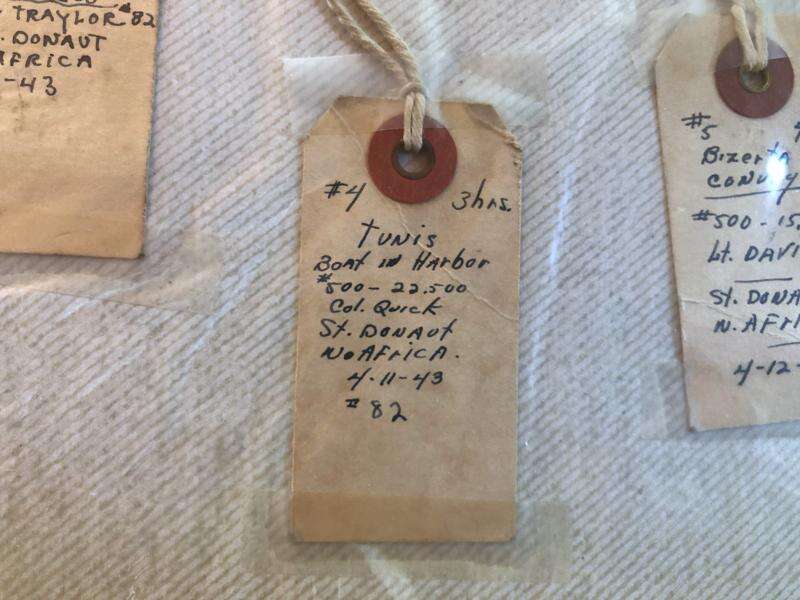 TRAYLOR #82
. DONAUT
AFRICA
-43
#4 3hrs.
TUNIS
BOAT IN HARBOR
#500 - 22,500
Col. Quick
St. DONAUT
No AFRICA.
4-11-43
#82
#5
Bizerta
CONVOY
#500 - 15,
Lt. DAVI
St. DONA
N. AFRI
4-12-